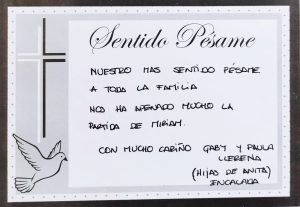 Sentido Pésame
NUESTRO MAS SENTIDO PÉSAME
A TODA LA FAMILIA
NOS HA APENADO MUCHO LA
PARTIDA DE MIRIAM.
CON MUCHO CARIÑO GABY Y PAULA
LLERENA
(HIJAS DE ANITA)
ENCALADA